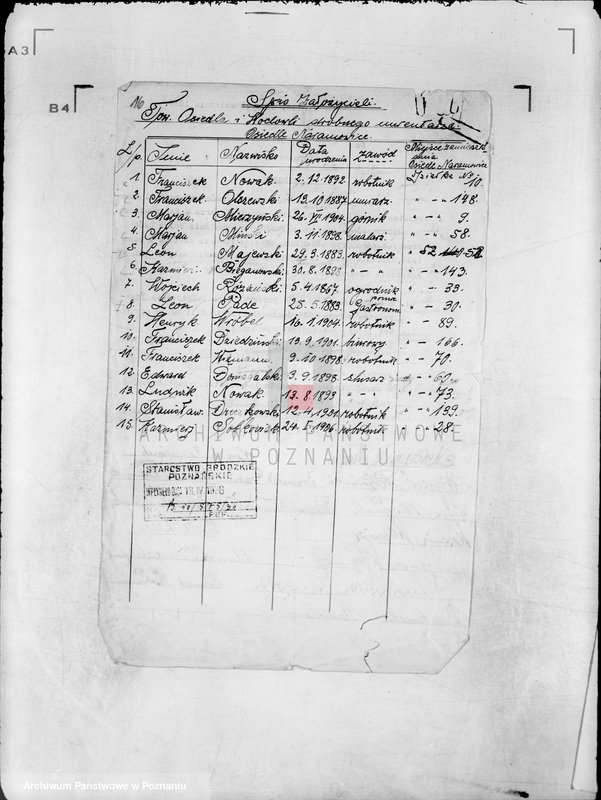 A3
B4
16
Spis Założycieli.
Tow. Osiedla i Hodowli drobnego inwentarza.
Osiedle Naramowice.
L/p. Imię Nazwisko Data urodzenia zawód Miejsce zamieszkania Osiedle Naramowice
1. Franciszek Nowak. 2.12.1892. robotnik Działka No 10.
2. Franciszek Olszewski 13.10.1887. murarz. " - " - 148.
3. Marjan Mierzyński. 26.VII.1904. górnik " - " 9.
4. Marjan Miński 3.11.1898. malarz. " - " 58.
5. Leon Majewski 29.3.1883. robotnik " 52
6. Kazimierz 30.8.1893 " - " " - " 143.
7. Wojciech Różański 5.4.1867. ogrodnik " - " 33.
8. Leon Pade 25.5.1883. Gastronom " - " 30.
9. Henryk Wróbel 16.1.1904. robotnik " - 89.
10. Franciszek Dziedziński 13.9.1901. biurowy " - 166.
11. Franciszek Niemann. 9.10.1898. robotnik " - 70.
12. Edward Domagalski 3.9.1898. ślusarz " - 69.
13. Ludwik Nowak 13.8.1893 " " " - " 73.
14. Stanisław. 12.4.1901. robotnik " - 139.
15. Kazimierz Sobkowiak 24.I.1906 robotnik " - " 28.
ARCHIWUM PAŃSTWOWE
W POZNANIU
STAROSTWO GRODZKIE
POZNAŃSKIE
18 IV 1936
Archiwum Państwowe w Poznaniu